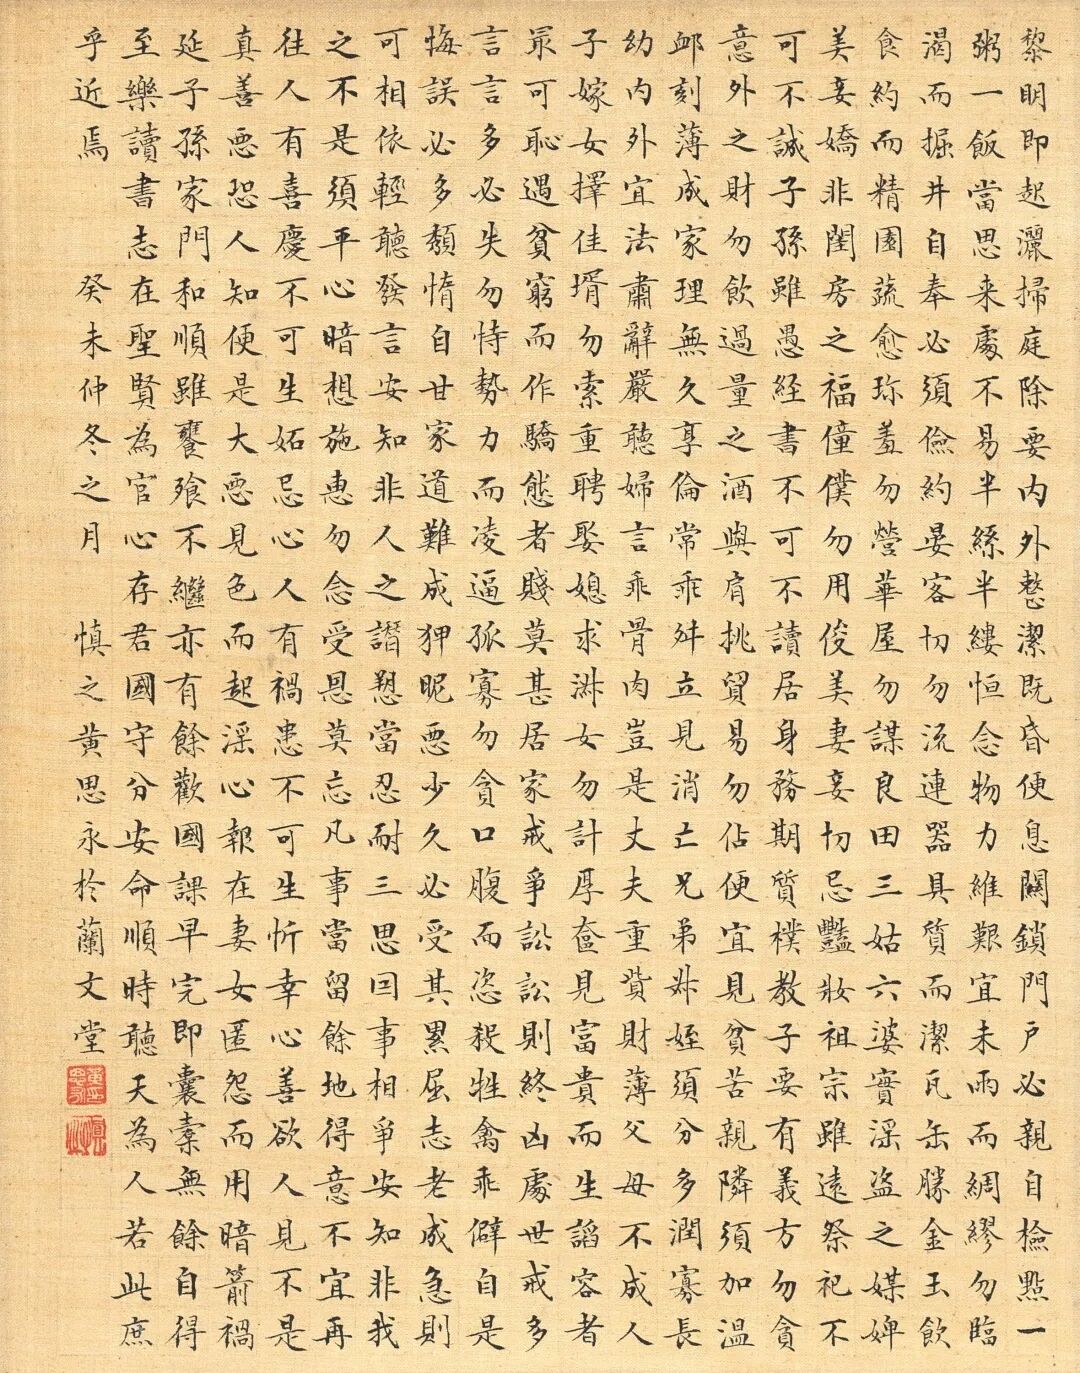 黎明即起灑掃庭除要內外整潔既昏便息關鎖門户必親自檢點一
粥一飯當思来處不易半絲半縷恒念物力維艱宜未雨而綢繆勿臨
渴而掘井自奉必須儉約晏客切勿流連器具質而潔瓦缶勝金玉飲
食約而精園蔬愈珍羞勿營華屋勿謀良田三姑六婆實淫盗之媒婢
美妾嬌非閨房之福僮僕勿用俊美妻妾切忌豔妝祖宗雖遠祭祀不
可不誠子孫雖愚經書不可不讀居身務期質樸教子要有義方勿貪
意外之財勿飲過量之酒與肩挑貿易勿佔便宜見貧苦親隣須加温
卹刻薄成家理無久享倫常乖舛立見消亡兄弟叔姪須分多潤寡長
幼内外宜法肅辭嚴聽婦言乖骨肉豈是丈夫重貲財薄父母不成人
子嫁女擇佳壻勿索重聘娶媳求淑女勿計厚奩見富貴而生諂容者
最可恥遇貧窮而作驕態者賤莫甚居家戒爭訟訟則終凶處世戒多
言言多必失勿恃勢力而凌逼孤寡勿貪口腹而恣殺牲禽乖僻自是
悔誤必多頹惰自甘家道難成狎昵惡少久必受其累屈志老成急則
可相依輕聽發言安知非人之譖愬當忍耐三思因事相爭安知非我
之不是須平心暗想施惠勿念受恩莫忘凡事當留餘地得意不宜再
往人有喜慶不可生妬忌心人有禍患不可生忻幸心善欲人見不是
真善惡恐人知便是大惡見色而起淫心報在妻女匿怨而用暗箭禍
延子孫家門和順雖饔飧不繼亦有餘歡國課早完即囊橐無餘自得
至樂讀書志在聖賢為官心存君國守分安命順時聽天為人若此庶
乎近焉 癸未仲冬之月 慎之黄思永於蘭文堂
慎之